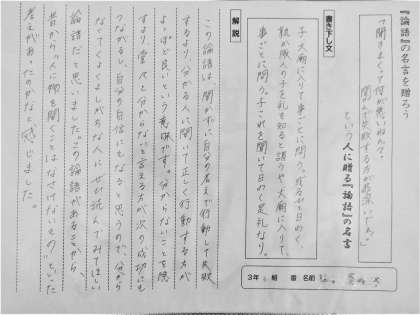 『論語』の名言を贈ろう
「聞きまくって何が悪いねんク。
聞いて失敗する方が
という人に贈る『論語』の名言
書き下し文
子大廟に入りて事ごとに問う。或るひと曰わく、
孰か鄹人の子を礼を知ると謂うや、大廟に入りて、
事ごとに問う。子これを聞いて曰わく是礼なり。
3年 組 番 名前
解説
この論語は、聞かずに自分の考えで行動して失敗
するより、分かる人に聞いて正しく行動する方が
よっぽど良いという意味です。分からないことを隠
すより堂々と分からないと言える方が次の成功にも
つながるし、自分の自信にもなると思うので、分から
なくてくよくよしちゃう人にぜひ読んでみてほしい
論語だと思いました。この論語があることから、
昔から「人に物を聞くことはなさけないもの」といった
考えがあったのかなと感じました。